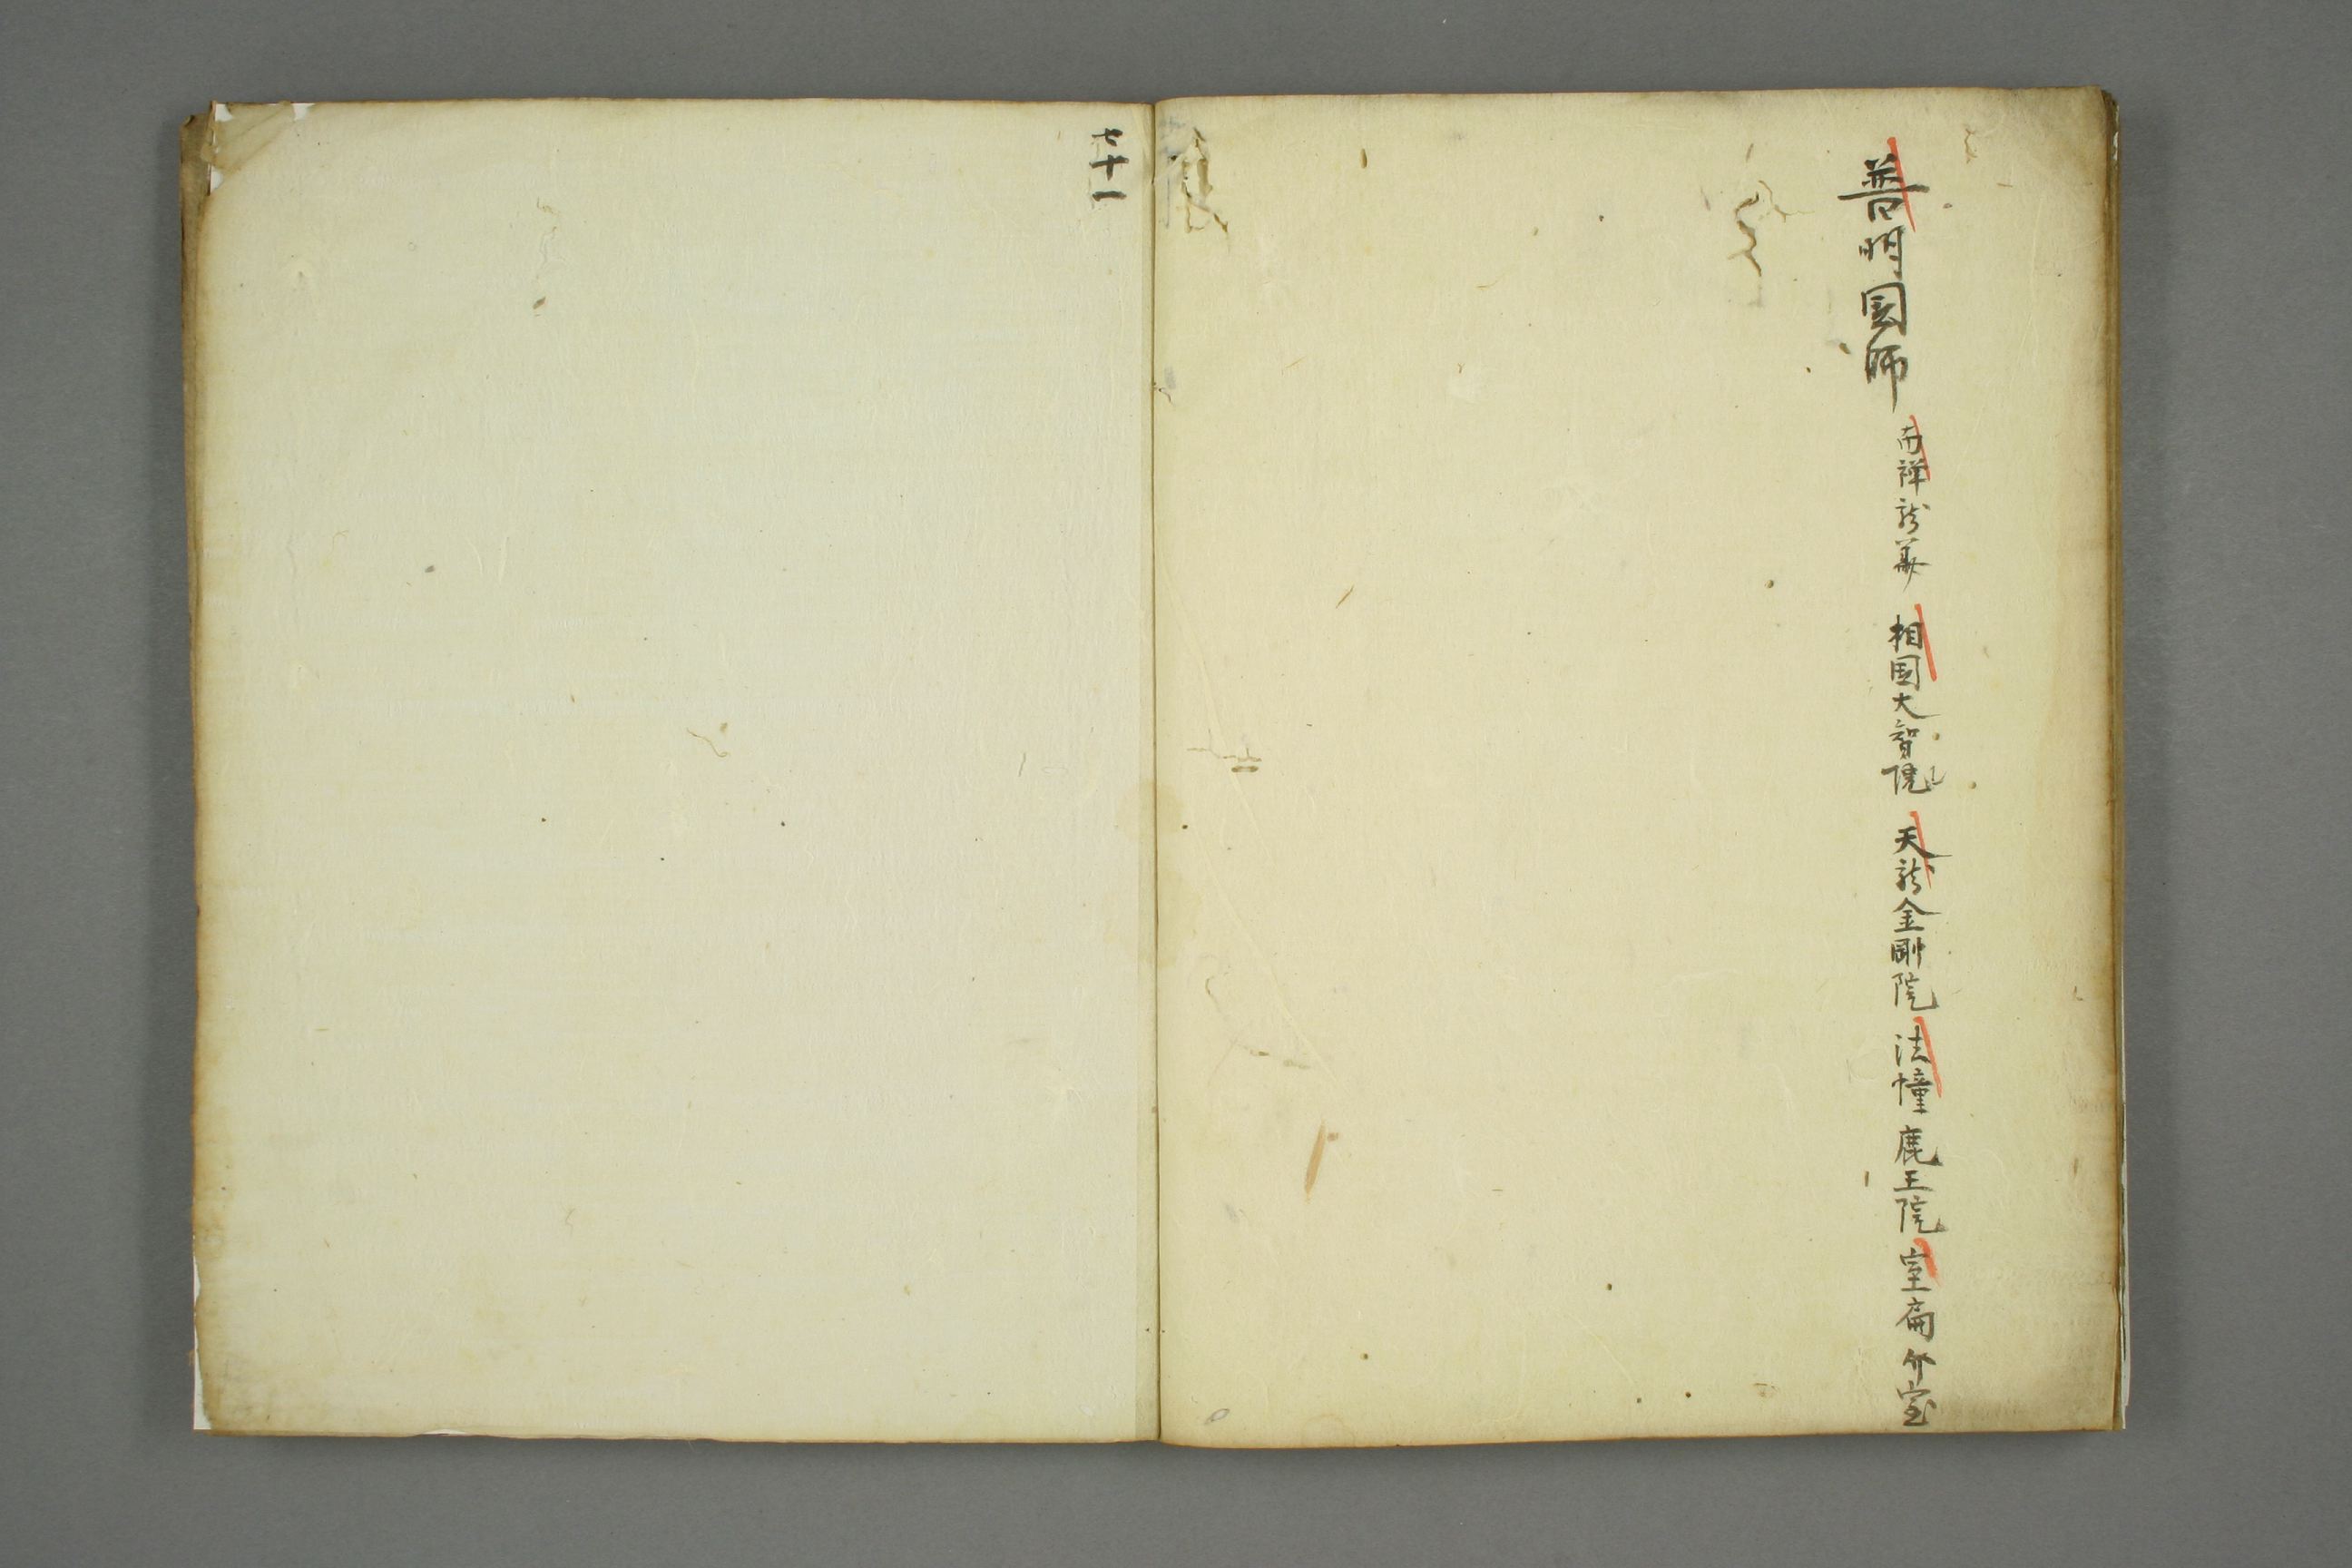 普明国師 南禅龍華 相国大智院 天龍金剛院 法幢鹿王院 室扁
七十一